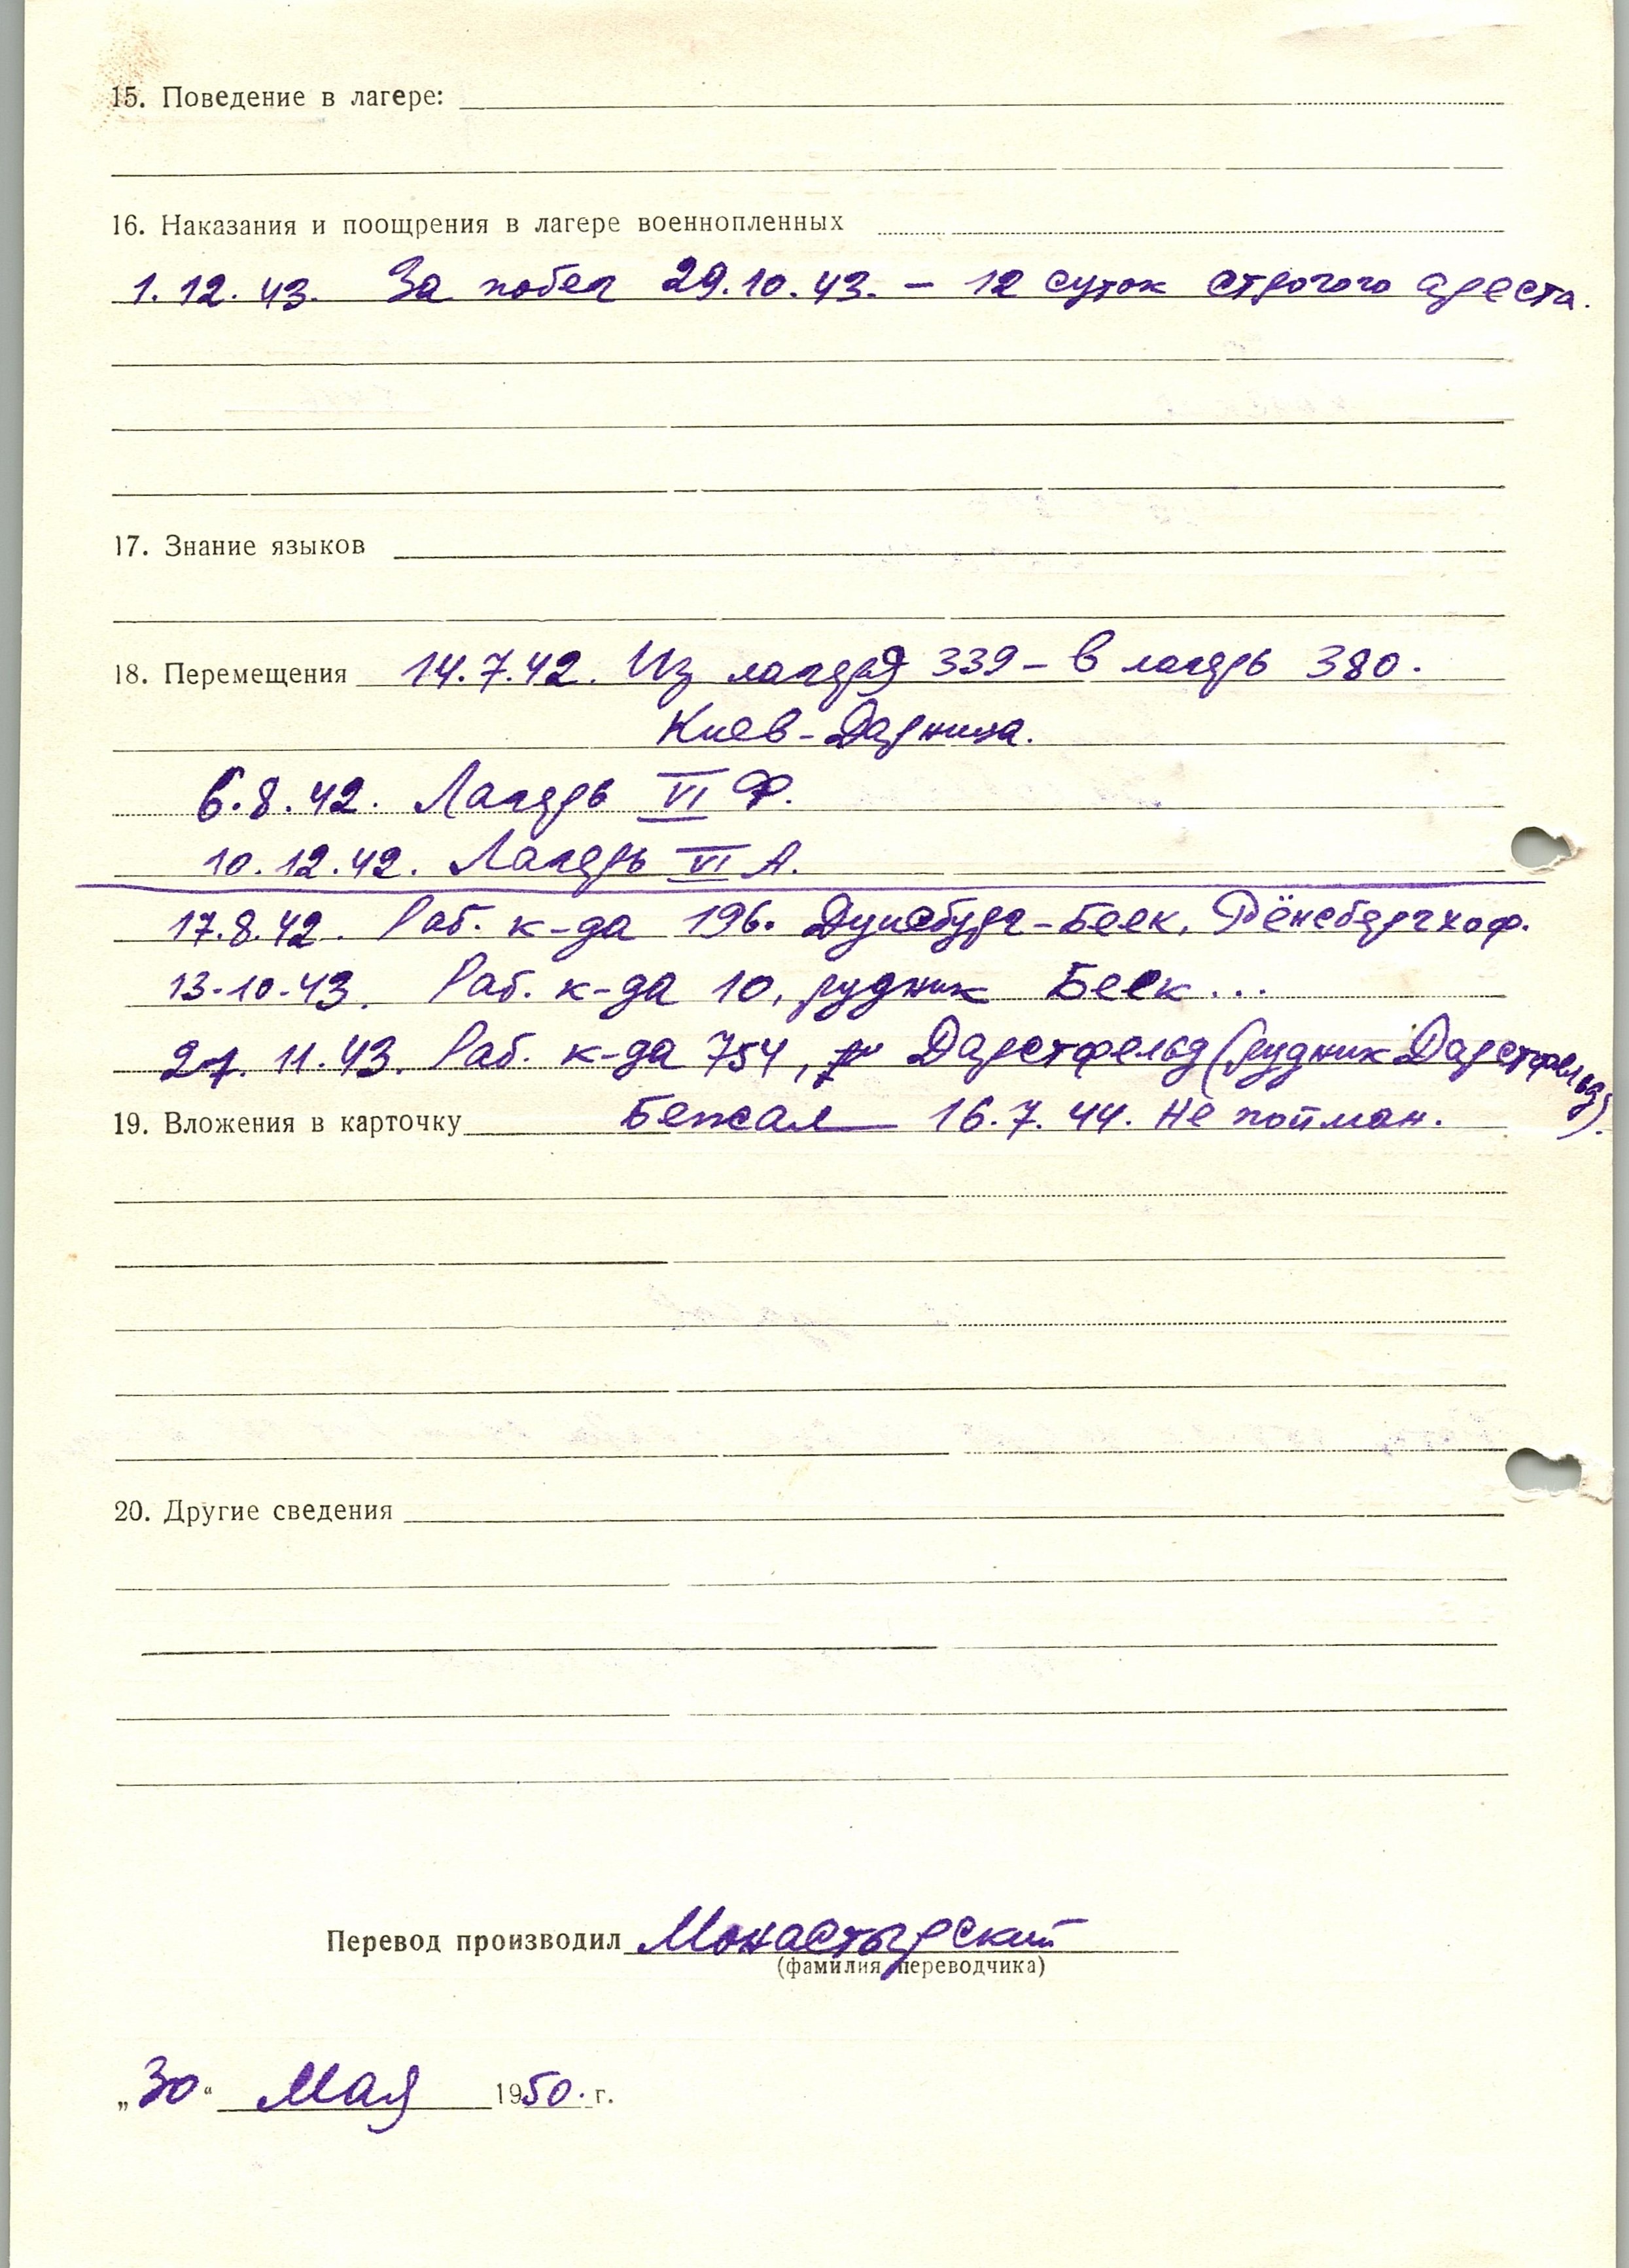 15. Поведение в лагере:
16. Наказания и поощрения в лагере военнопленных
1.12.43. За побег 29.10.43. – 12 суток строгого ареста.
17. Знание языков
18. Перемещения 14.7.42. Из лагеря 339 – в лагерь 380.
Киев-Дарница.
6.8.42. Лагерь VI Ф.
10.12.42. Лагерь VI А.
17.8.42. Раб. к-да 196. Дуисбург-Беек, Рёнсбергхоф.
13-10-43. Раб. к-да 10, рудник Беек...
21.11.43. Раб. к-да 754, Дарстфельд (рудник Дарстфельд).
19. Вложения в карточку Бежал 16.7.44. Не пойман.
20. Другие сведения
Перевод производил Монастырский
(фамилия переводчика)
„30“ Мая 1950. г.